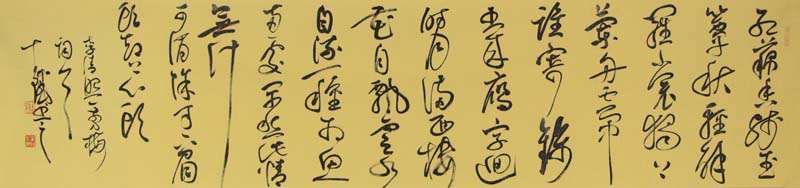 红藕香残玉
簟秋轻解
罗裳独上
兰舟云中
谁寄锦
书来雁字回
时月满西楼
花自飘零水
自流一种相思
两处闲愁此情
無计
可消除才下眉
头却上心头
李清照一剪梅
词